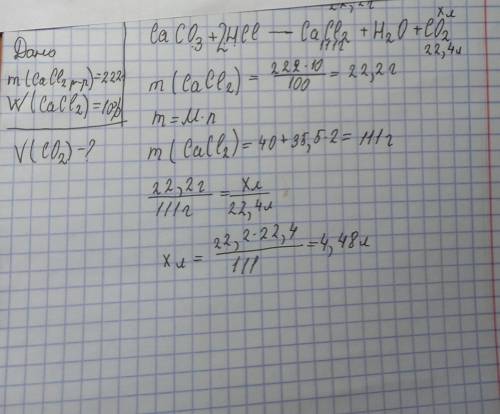 Дано
m(CaCl₂ р-р)=222
W(CaCl₂)=10%
V(CO₂)-?
22,2г хл
CaCO₃+2HCl — CaCl₂ + H₂O + CO₂
111г 22,4л
m(CaCl₂) = 222·10/100 = 22,2г
m=M·n
m(CaCl₂)=40+35,5·2=111г
22,2г/111г = хл/22,4л
хл = 22,2·22,4/111 = 4,48л